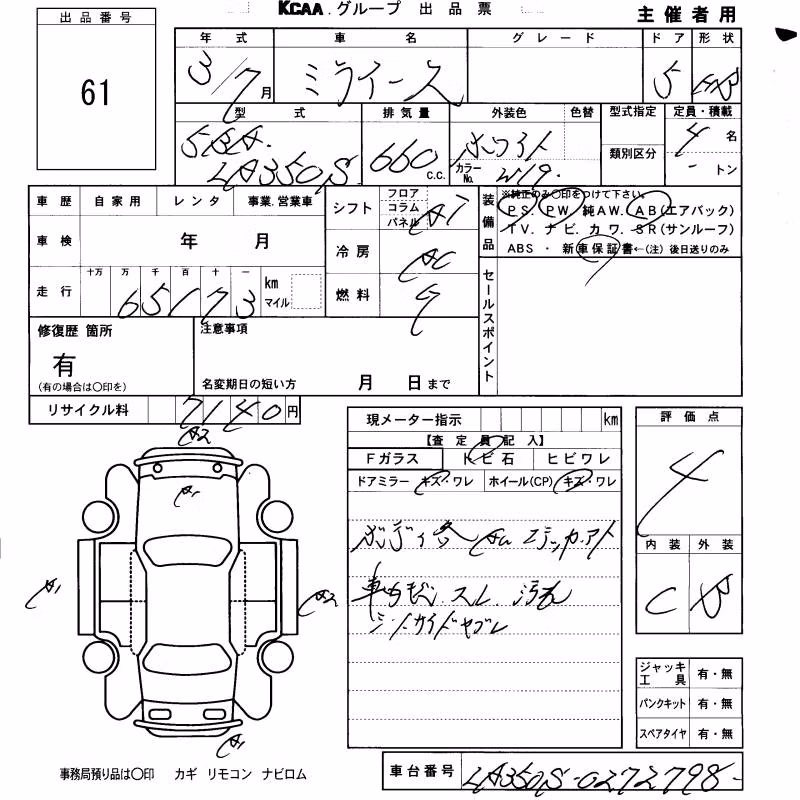 KCAA.グループ 出品票
主催者用
出品番号
61
年式 車名 グレード ドア 形状
3/7月 ミライース 5
型式 排気量 外装色 色替 型式指定 定員・積載
5BA-
LA350S 660 C.C. ホワイト カラーNo. W19 類別区分 4名
- トン
車歴 自家用 レンタ 事業.営業車
シフト フロア コラム パネル AT
装備品 ※純正のみ〇印をつけて下さい。
PS. PW. 純AW. AB(エアバック)
TV. ナビ. カワ. SR(サンルーフ)
ABS ・ 新車保証書←(注) 後日送りのみ
車検 年 月
冷房 AC
走行 十万 万 千 百 十 一 km マイル
65173
燃料 ガ
セールスポイント
修復歴 箇所
有
(有の場合は〇印を)
注意事項
名変期日の短い方 月 日まで
リサイクル料 7140円
現メーター指示 km
【査定員記入】
Fガラス トビ石 ヒビワレ
ドアミラー キズ・ワレ ホイール(CP) キズ・ワレ
評価点
4
内装 外装
C B
A2
A1
A1
A2
A1
車内 スレ 汚れ
シートサイドヤブレ
ジャッキ工具 有・無
パンクキット 有・無
スペアタイヤ 有・無
事務局預り品は〇印 カギ リモコン ナビロム
車台番号 LA350S-0272798-